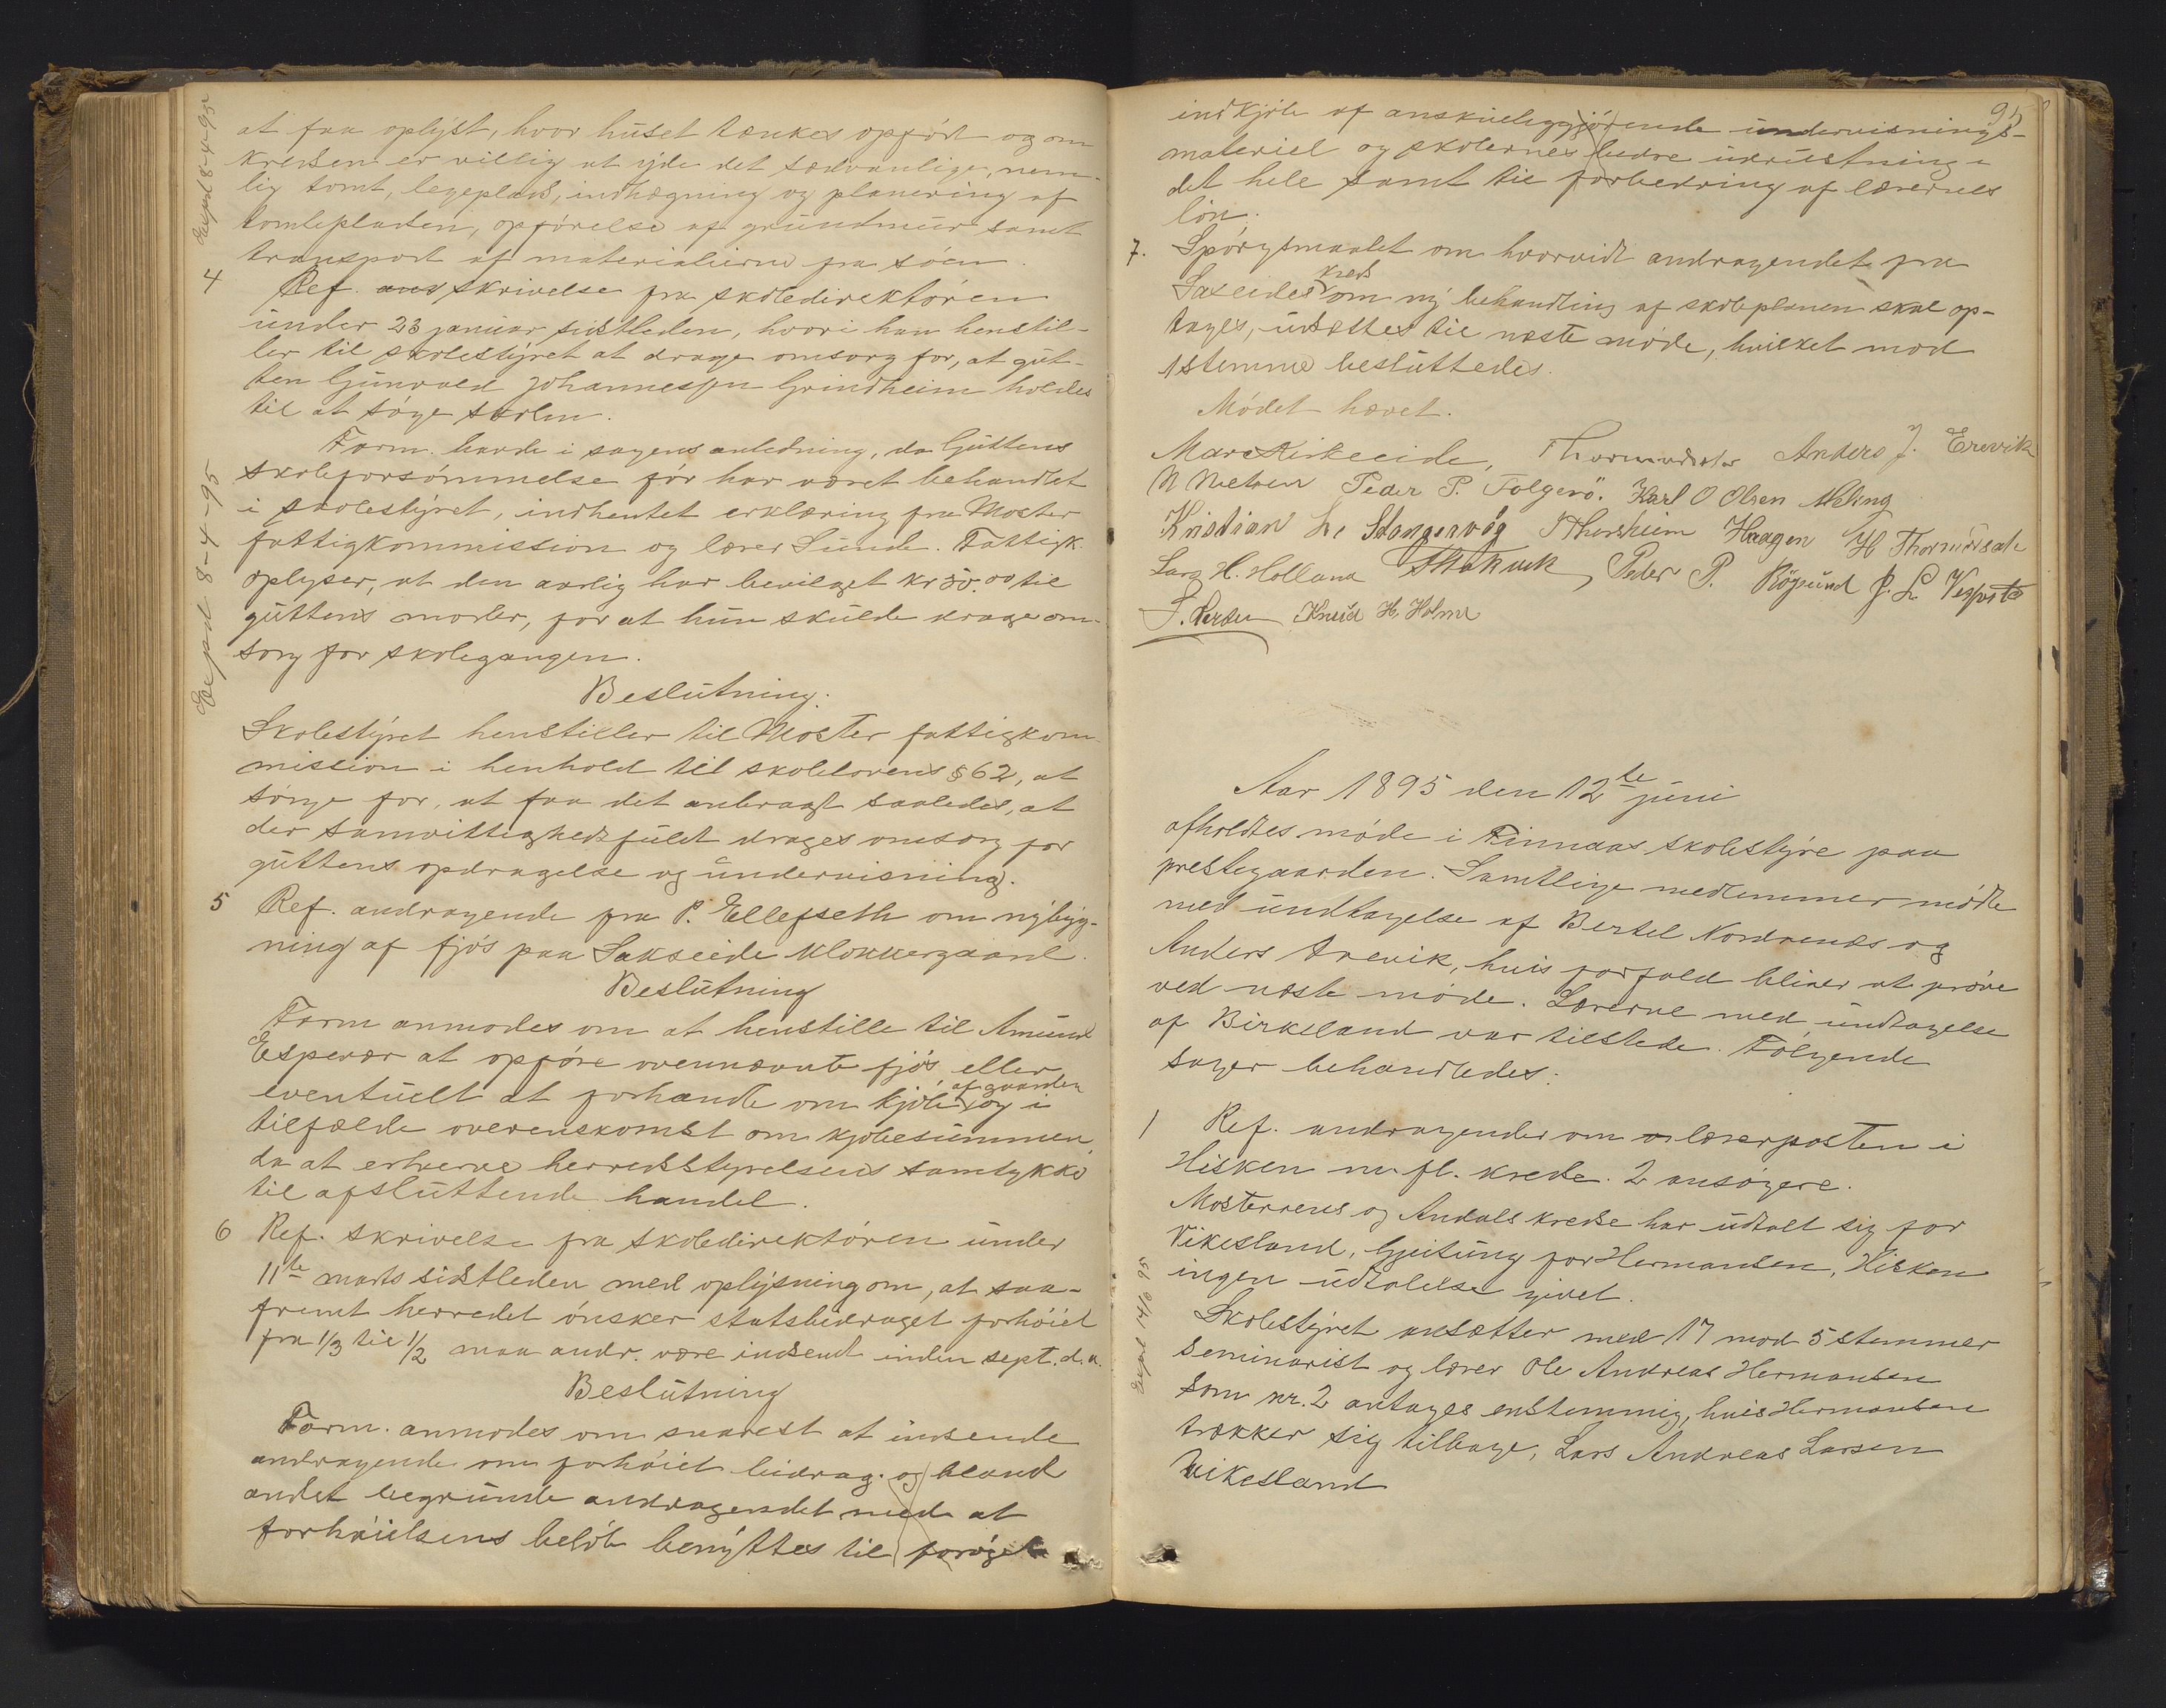 Expd 8-4-95
at faa oplyst, hvor huset tænkes opført og om
kredsen er villig at yde det sædvanlige, nem-
lig tomt, legeplads, indhægning og planering af
tomtepladsen, opförelse af grundmur samt
transport af materialierne fra söen.
4 Ref. skrivelse fra skoledirektören
under 23 januar sidstleden, hvori han henstil-
ler til skolestyret at drage omsorg for, at gut-
ten Gunvald Johannessen Grindheim holdes
til at söge skolen.
Form. havde i sagens anledning, da Guttens
skoleforsömmelse för har været behandlet
i skolestyret, indhentet erklæring fra Moster
fattigkommission og lærer Sunde. Fattigk.
oplyser, at den aarlig har bevilget kr 50.00 til
guttens moder, for at hun skulde drage om-
sorg for skolegangen.
Expd 8-4-95
Beslutning.
Skolestyret henstiller til Moster fattigkom-
mission i henhold til skolelovens § 62, at
sörge for, at faa det anbragt saaledes, at
der samvittighedsfuldt drages omsorg for
guttens opdragelse og undervisning.
5 Ref. andragende fra P. Ellefseth om nybyg-
ning af fjös paa Sakseide klokkergaard.
Beslutning
Form anmodes om at henstille til Amund
Espevær at opföre ovennævnte fjös eller
eventuelt at forhandle om kjöb af gaarden og i
tilfælde overenskomst om kjöbesummen
da at erhverve herredsstyrelsens samtykke
til afsluttende handel.
6 Ref. skrivelse fra skoledirektören under
11te marts sidstleden med oplysning om, at saa-
fremt herredet önsker statsbidraget forhöiet
fra 1/3 til 1/2 maa andr. være indsendt inden sept. d.a.
Beslutning
Form. anmodes om snarest at indsende
andragende om forhöiet bidrag. og bland
andet begrunde andragendet med at
forhöielsens belöb benyttes til foröget
95
indkjöb af anskueliggjörende undervisnings-
materiel og skolernes bedre udrustning i
det hele samt til forbedring af lærernes
lön.
7. Spörgsmaalet om hvorvidt andragendet fra
Saxeides kreds om ny behandling af skoleplanen skal op-
tages, udsættes til næste möde, hvilket mod
1 stemme besluttedes.
Mödet hævet.
Anders J. Erevik
N Nielsen Peder P. Folgerö. Karl O Olsen Meling
Kristian L. Stangervåg Haagen H Thormodsæte
Lars H. Holland Peder P. Rögsund
Knud H. Holme
Aar 1895 den 12te juni
afholdtes möde i Finnaas skolestyre paa
prestegaarden. Samtlige medlemmer mödte
med undtagelse af Bertel Nordrenæs og
Anders Arevik, hvis forfald bliver at pröve
ved næste möde. Lærerne med undtagelse
af Birkeland var tilstede. Fölgende
sager behandledes:
1 Ref. andragender om lærerposten i
Hisken m. fl. kredse. 2 ansögere.
Mosterrens og Andals kredse har udtalt sig for
Vikesland, Gjeitung for Hermansen, Hisken
ingen udtalelse givet.
Expd 14/6 95
Skolestyret ansætter med 17 mod 5 stemmer
seminarist og lærer Ole Andreas Hermansen
Som nr. 2 antages enstemmig, hvis Hermansen
trækker sig tilbage, Lars Andreas Larsen
Vikesland